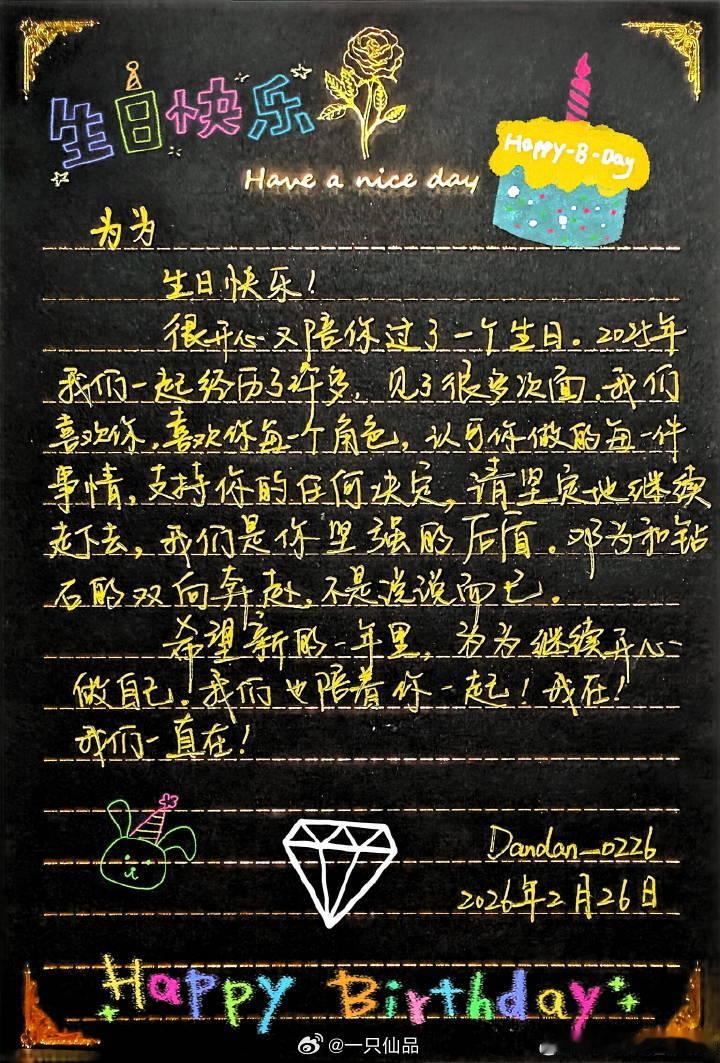 生日快乐
Have a nice day
Happy-B-Day
为为
生日快乐!
很开心又陪你过了一个生日。2025年
我们一起经历了许多,见了很多次面,我们
喜欢你,喜欢你每一个角色,认可你做的每一件
事情,支持你的任何决定,请坚定地继续
走下去,我们是你坚强的后盾。邓为和钻
石的双向奔赴,不是说说而已。
希望新的一年里,为为继续开心
做自己!我们也陪着你一起!我在!
我们一直在!
Dandan_0226
2026年2月26日
Happy Birthday
@一只仙品